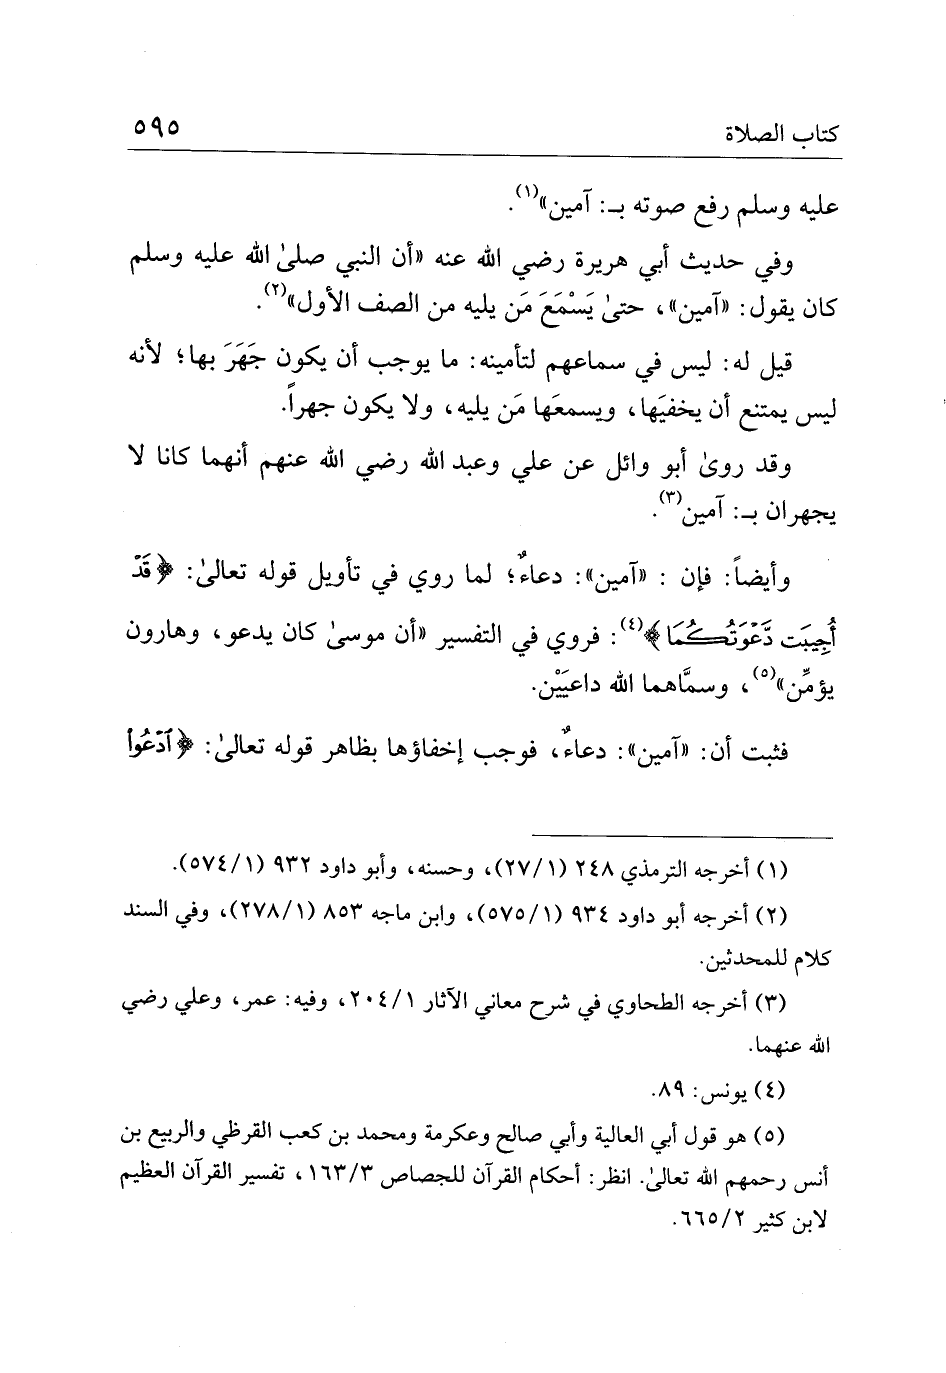 كتاب الصلاة ٥٩٥
عليه وسلم رفع صوته بـ: آمين»(١).
وفي حديث أبي هريرة رضي الله عنه «أن النبي صلىٰ الله عليه وسلم
كان يقول: «آمين»، حتىٰ يَسْمَعَ مَن يليه من الصف الأول»(٢).
قيل له: ليس في سماعهم لتأمينه: ما يوجب أن يكون جَهَرَ بها؛ لأنه
ليس يمتنع أن يخفيَها، ويسمعَها مَن يليه، ولا يكون جهراً.
وقد روىٰ أبو وائل عن علي وعبد الله رضي الله عنهم أنهما كانا لا
يجهران بـ: آمين(٣).
وأيضاً: فإن : «آمين»: دعاءٌ؛ لما روي في تأويل قوله تعالىٰ: ﴿قَدْ
أُجِيبَت دَّعْوَتُكُمَا﴾(٤): فروي في التفسير «أن موسىٰ كان يدعو، وهارون
يؤمِّن»(٥)، وسمَّاهما الله داعيَيْن.
فثبت أن: «آمين»: دعاءٌ، فوجب إخفاؤها بظاهر قوله تعالىٰ: ﴿ٱدْعُوا۟
(١) أخرجه الترمذي ٢٤٨ (٢٧/١)، وحسنه، وأبو داود ٩٣٢ (٥٧٤/١).
(٢) أخرجه أبو داود ٩٣٤ (٥٧٥/١)، وابن ماجه ٨٥٣ (٢٧٨/١)، وفي السند
كلام للمحدثين.
(٣) أخرجه الطحاوي في شرح معاني الآثار ٢٠٤/١، وفيه: عمر، وعلي رضي
الله عنهما.
(٤) يونس: ٨٩.
(٥) هو قول أبي العالية وأبي صالح وعكرمة ومحمد بن كعب القرظي والربيع بن
أنس رحمهم الله تعالىٰ. انظر: أحكام القرآن للجصاص ١٦٣/٣، تفسير القرآن العظيم
لابن كثير ٦٦٥/٢.